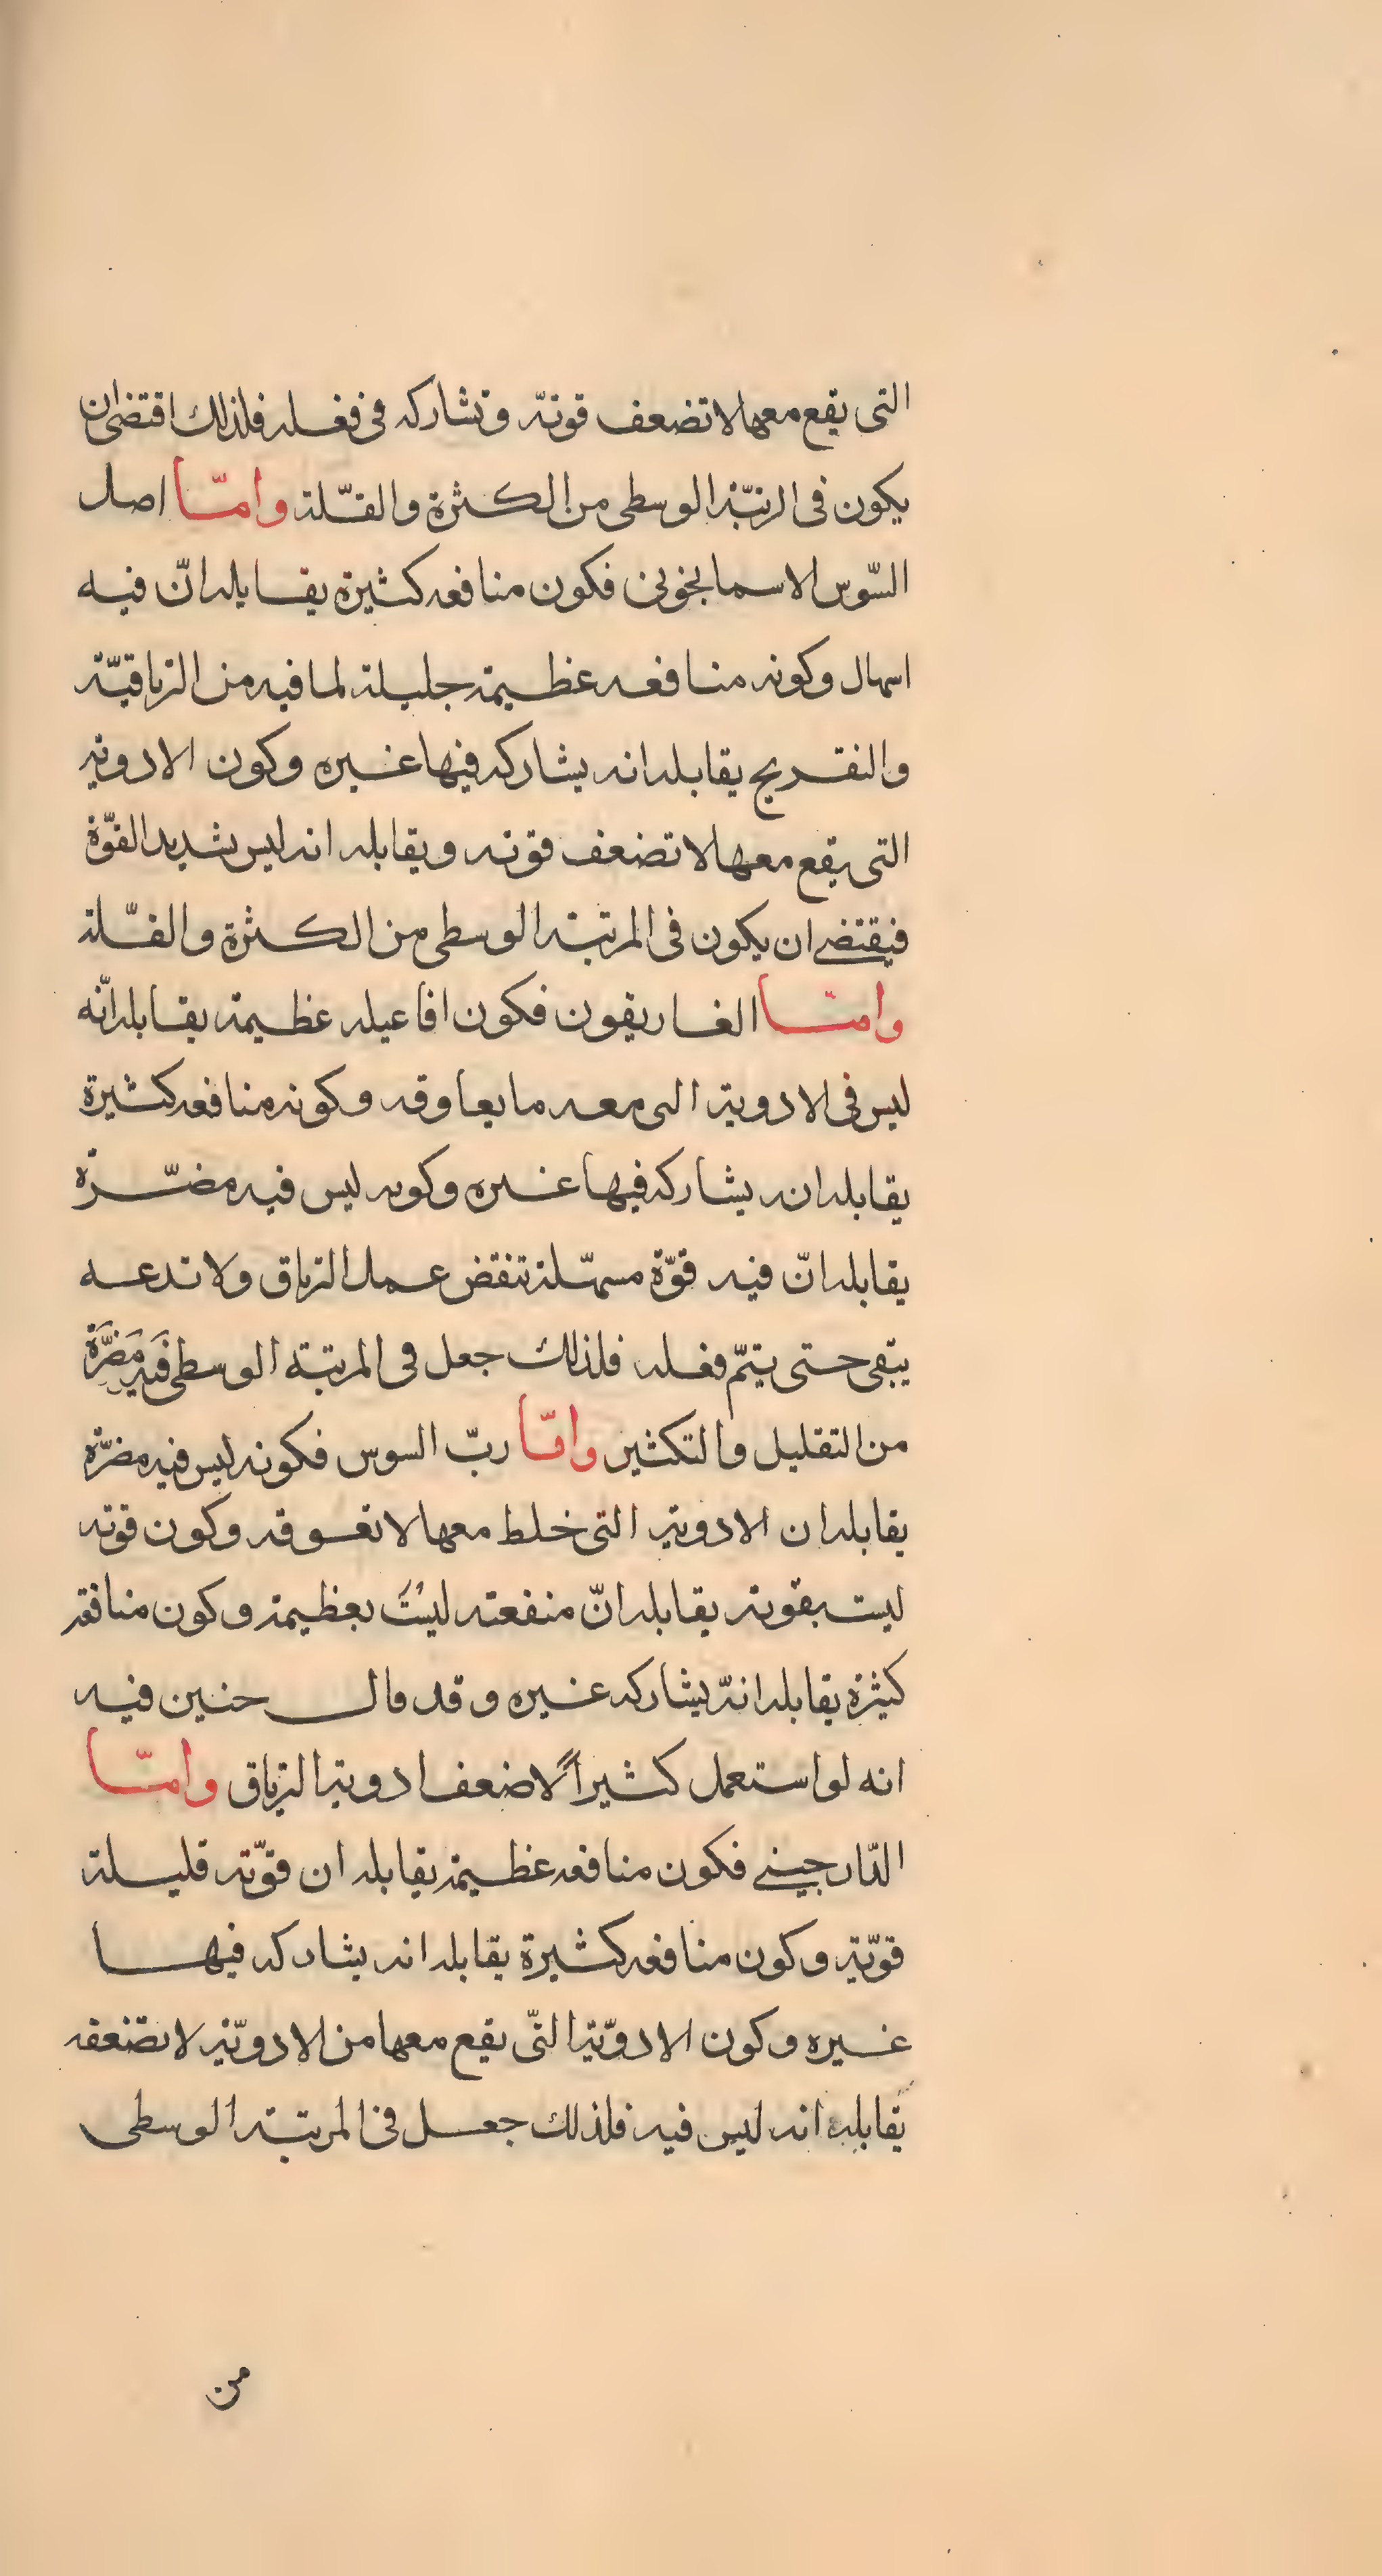 التى يقع معها لا تضعف قوته وتشاركه فى فعله فلذلك اقتضى ان
يكون فى الرتبة الوسطى من الكثرة والقلة وامّا اصل
السّوس الاسمانجونى فكون منافعه كثيرة يقابله انّ فيه
اسهال وكونه منافعه عظيمة جليلة لما فيه من الترياقيّة
والتفريح يقابله انه يشاركه فيها غيره وكون الادوية
التى يقع معها لا تضعف قوته ويقابله انه ليس بشديد القوّة
فيقتضى ان يكون فى المرتبة الوسطى من الكثرة والقلّة
وامّا الغاريقون فكون افاعيله عظيمة يقابله انّه
ليس فى الادوية التى معه ما يعاوقه وكونه منافعه كثيرة
يقابله انه يشاركه فيها غيره وكونه ليس فيه مضرّة
يقابله انّ فيه قوّة مسهّلة تنقض عمل الترياق ولا تدعه
يبقى حتى يتمّ فعله فلذلك جعل فى المرتبة الوسطى فيه مَضَرَّة
من التقليل والتكثير وامّا ربّ السوس فكونه ليس فيه مضرّة
يقابله ان الادوية التى خلط معها لا تعوقه وكون قوته
ليست بقوية يقابله انّ منفعته ليسَتْ بعظيمة وكون منافعه
كثيرة يقابله انّه يشاركه غيره وقد قال حنين فيه
انه لو استعمل كثيراً لاضعف ادوية الترياق وامّا
الدّارجينى فكون منافعه عظيمة يقابله ان قوّته قليلة
قويّة وكون منافعه كثيرة يقابله انه يشاركه فيها
غيره وكون الادويّة التّى يقع معها من الادويّة لا تضعفه
يقابله انه ليس فيه فلذلك جعل فى المرتبة الوسطى
من